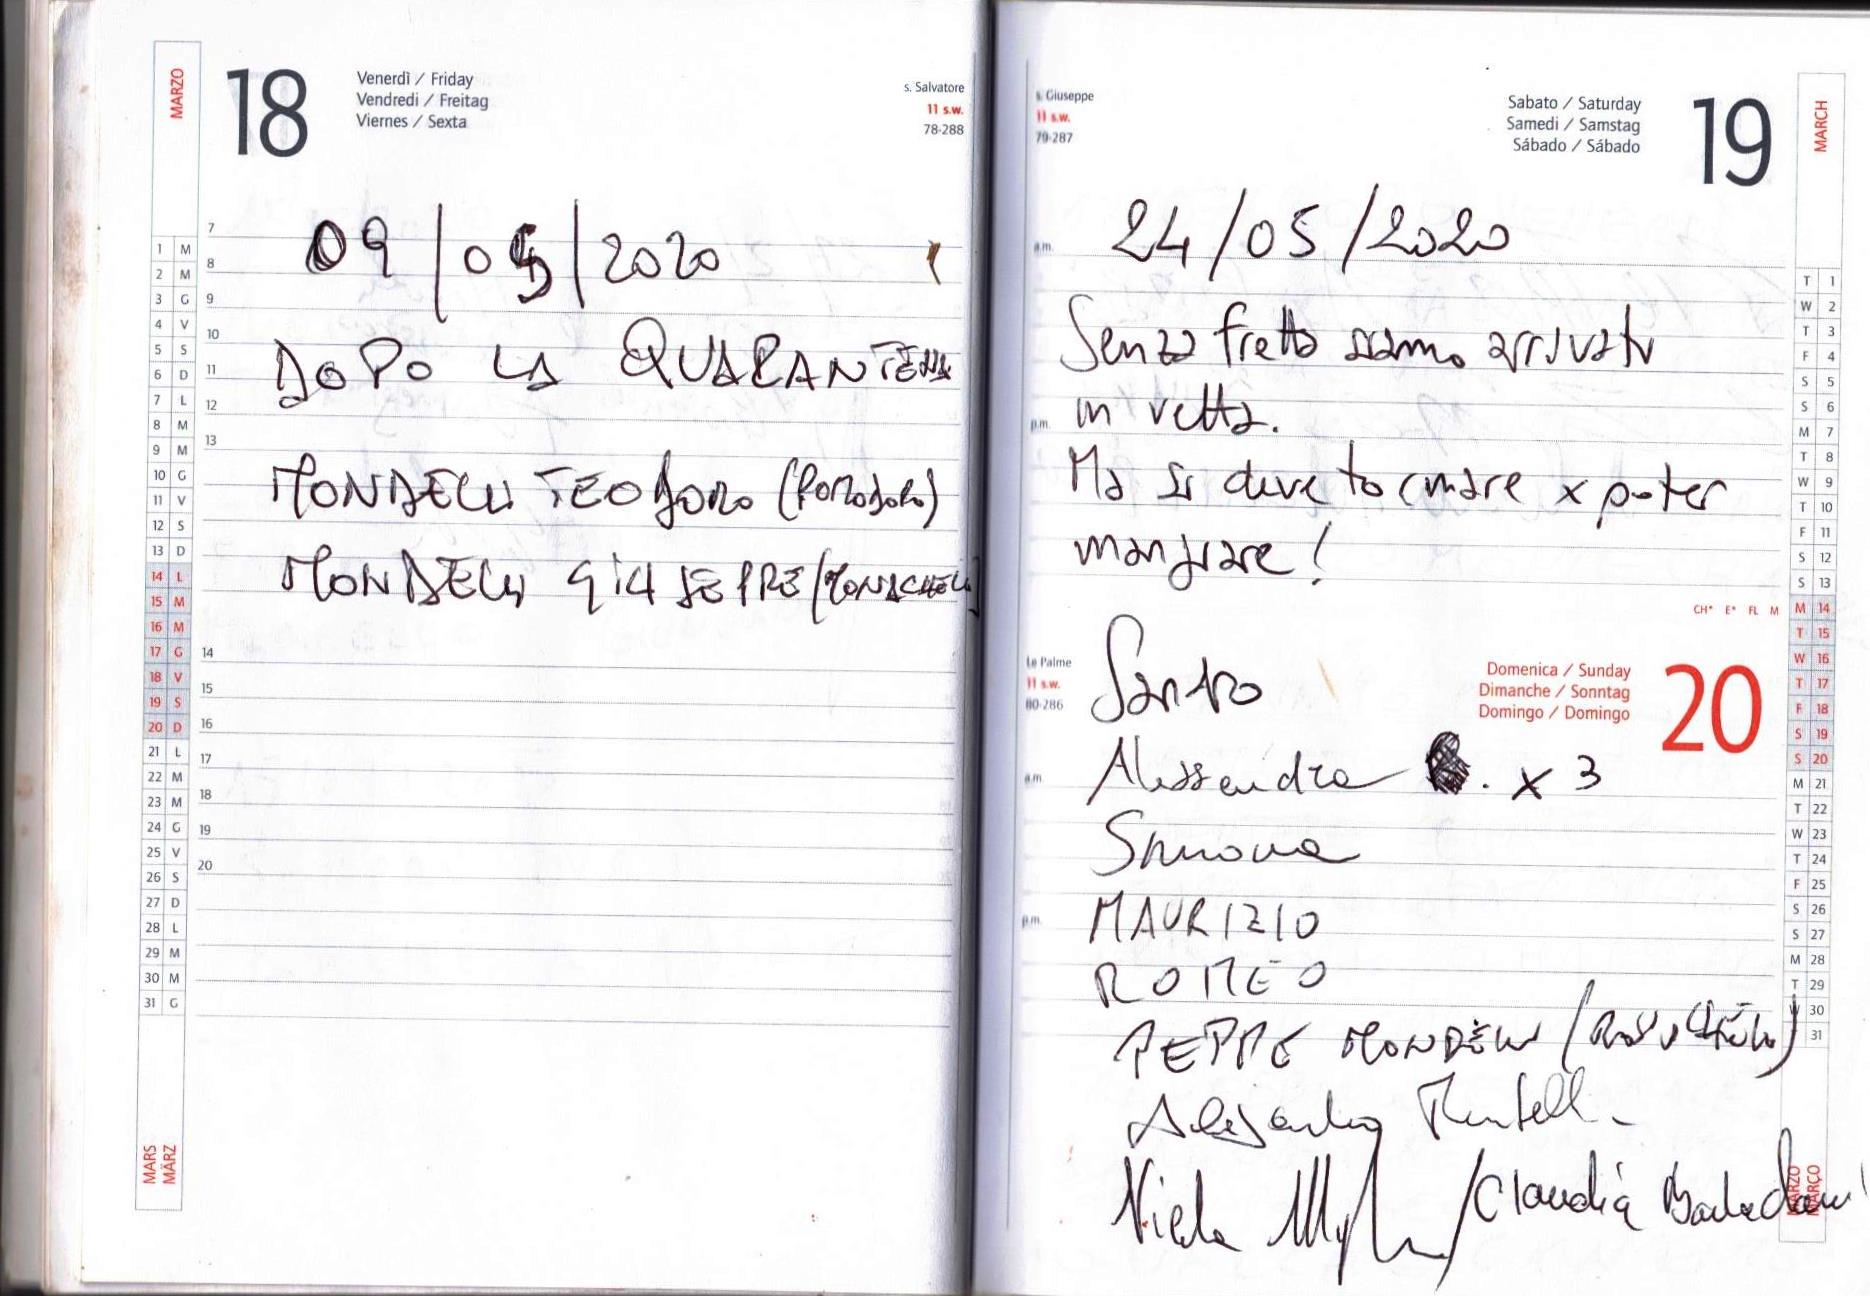 MARZO
18
Venerdì / Friday
Vendredi / Freitag
Viernes / Sexta
s. Salvatore
11 s.w.
78-288
7
8
9
10
11
12
13
14
15
16
17
18
19
20
1 M
2 M
3 G
4 V
5 S
6 D
7 L
8 M
9 M
10 G
11 V
12 S
13 D
14 L
15 M
16 M
17 G
18 V
19 S
20 D
21 L
22 M
23 M
24 G
25 V
26 S
27 D
28 L
29 M
30 M
31 G
MARS
MÄRZ
09/05/2020
DOPO LA QUARANTENA
MONDELLI TEODORO (POMODORO)
MONDELLI GIUSEPPE (MONACHELLO)
s. Giuseppe
11 s.w.
79-287
Sabato / Saturday
Samedi / Samstag
Sábado / Sábado
19
MARCH
a.m.
p.m.
24/05/2020
Senza fretta siamo arrivati
in vetta.
Ma si deve tornare x poter
mangiare!
CH* E* FL M
Le Palme
11 s.w.
80-286
Domenica / Sunday
Dimanche / Sonntag
Domingo / Domingo
20
a.m.
p.m.
Santo
Alessandra . x 3
Simona
MAURIZIO
ROMEO
PEPPE MONDELLI
Alessandro
/ Claudia
T 1
W 2
T 3
F 4
S 5
S 6
M 7
T 8
W 9
T 10
F 11
S 12
S 13
M 14
T 15
W 16
T 17
F 18
S 19
S 20
M 21
T 22
W 23
T 24
F 25
S 26
S 27
M 28
T 29
W 30
31
MARZO
MARÇO